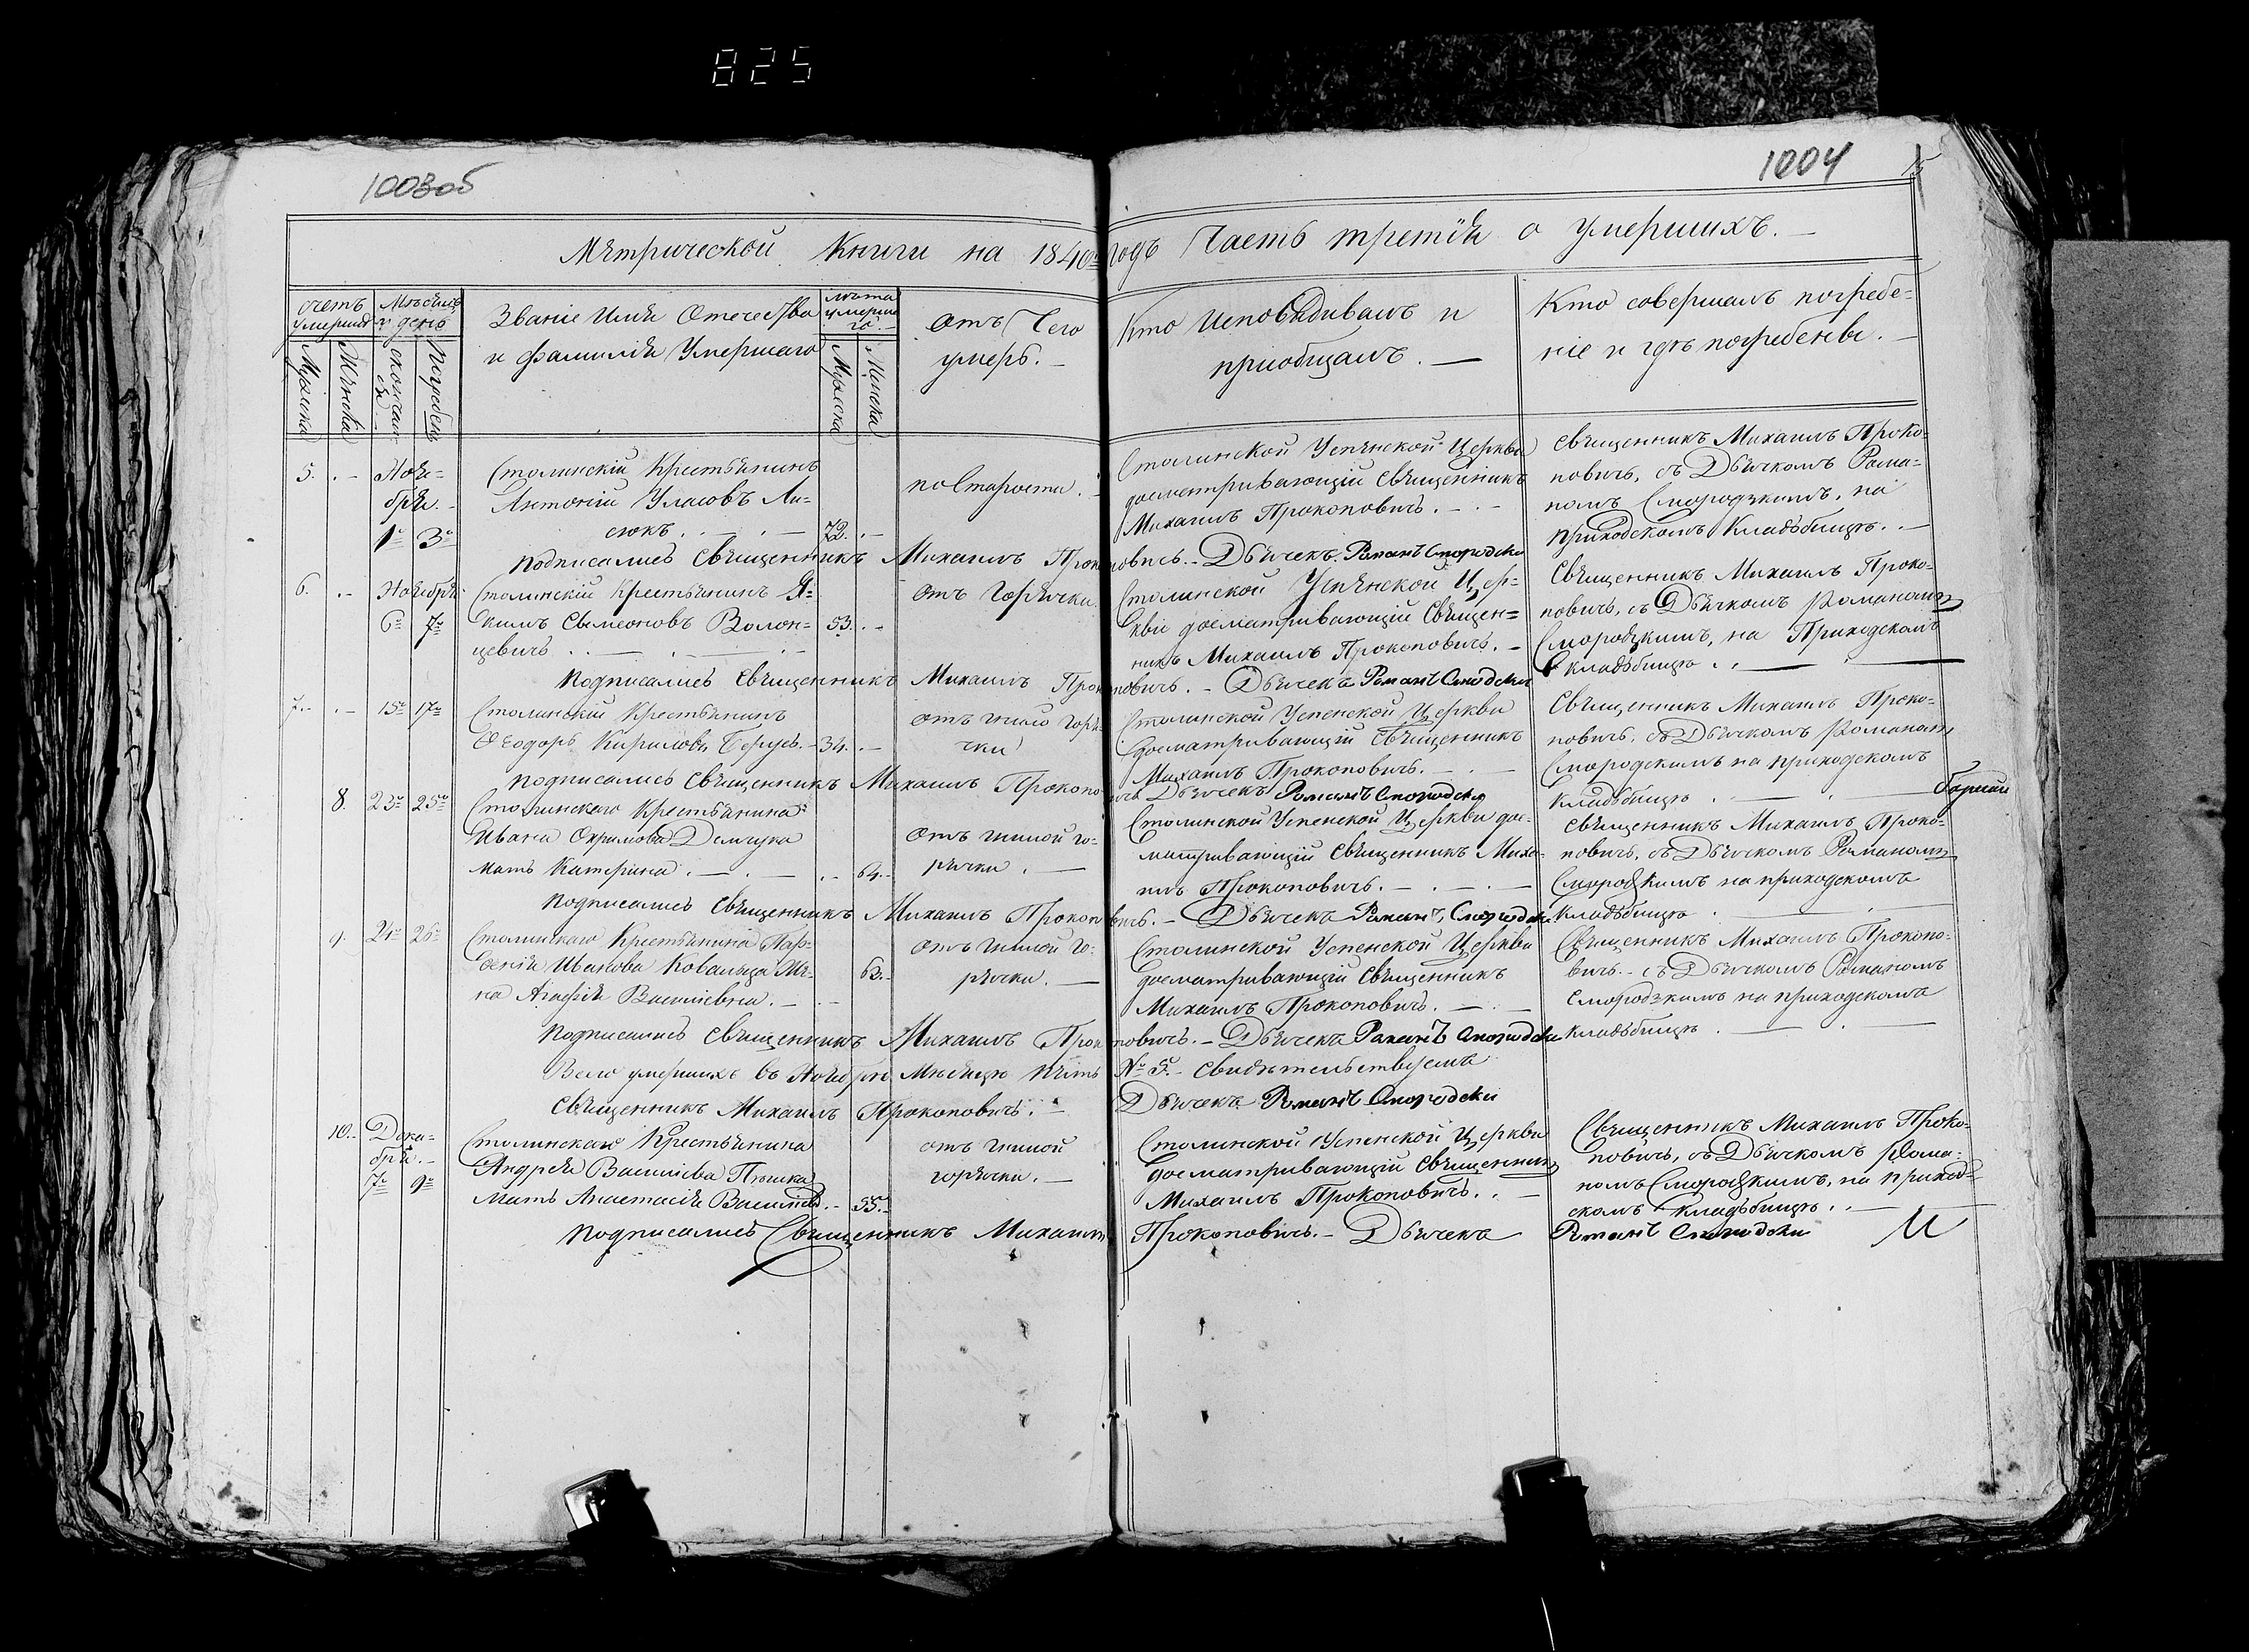 825
1003об
1004
15
Мѣтрической Книги на 1840й годъ Часть третія о умершихъ. —
счетъ умершихъ
Мужеска
Женска
Мѣсяцъ и день
скончался
Погребенъ
Званіе Имя Отечество
и фамилія Умершаго
лѣта умершаго
Мужеска
Женска
Отъ Чего
умеръ. —
Кто Исповѣдывалъ и
приобщалъ. —
Кто совершалъ погребе=
ніе и гдѣ погребены. —
5. Ноя=
бря.
1е 3е
Столинскій Крестьянинъ
Антоній Уласовъ Ли=
сюкъ. 72.
по Старости.
Столинской Успѣнской Церкви
досматривающій Священникъ
Михаилъ Прокоповичъ. —
Священникъ Михаилъ Проко=
повичъ, съ Дьячкомъ Рома=
номъ Смородзкимъ, на
приходскомъ Кладбищѣ. —
подписались Священникъ Михаилъ Прокоповичъ. — Дьячекъ Романъ Смородски
6. Ноября
6е 7е
Столинскій Крестьянинъ Я=
кимъ Сымеоновъ Волон=
цевичъ 53.
отъ Горячки.
Столинской Успѣнской Цер=
кви досматривающій Священ=
никъ Михаилъ Прокоповичъ. —
Священникъ Михаилъ Проко=
повичъ, съ Дьячкомъ Романомъ
Смородзкимъ, на Приходскомъ
кладбищѣ.
Подписались Священникъ Михаилъ Прокоповичъ. — Дьячекъ Романъ Смородски
7. 15е 17е
Столинскій Крестьянинъ
Ѳеодоръ Кириловъ Берусъ. 34.
отъ гнилой горя=
чки
Столинской Успенской Церкви
досматривающій Священникъ
Михаилъ Прокоповичъ. —
Священникъ Михаилъ Проко=
повичъ, съ Дьячкомъ Романомъ
Смородскимъ на приходскомъ
Кладбищѣ.
подписались Священникъ Михаилъ Прокоповичъ Дьячекъ Романъ Смородски
8. 23е 25е
Столинскаго Крестьянина
Ивана Охримова Демчука
мать Катерина. 64.
отъ гнилой го=
рячки. —
Столинской Успенской Церкви дос=
матривающій Священникъ Миха=
илъ Прокоповичъ. —
Священникъ Михаилъ Проко=
повичъ, съ Дьячкомъ Романомъ
Смородзкимъ на приходскомъ
Кладбищѣ
Подписались Священникъ Михаилъ Прокоповичъ. — Дьячекъ Романъ Смородски
9. 24е 26е
Столинскаго Крестьянина Пар=
фенія Иванова Ковальца Же=
на Агафія Васильевна. 63.
отъ гнилой го=
рячки. —
Столинской Успенской Церкви
досматривающій Священникъ
Михаилъ Прокоповичъ. —
Священникъ Михаилъ Прокопо=
вичъ. съ Дьячкомъ Романомъ
Смородзкимъ на приходскомъ
кладбищѣ.
Подписались Священникъ Михаилъ Прокоповичъ. — Дьячекъ Романъ Смородски
Всего умершихъ въ Ноябрѣ Мѣсяцѣ пять № 5. Свидѣтельствуемъ
Священникъ Михаилъ Прокоповичъ. — Дьячекъ Романъ Смородски
10. Дека=
бря.
7е 9е
Столинскаго Крестьянина
Андрея Васильева Пешка
Мать Анастасія Васильева. 55.
отъ гнилой
горячки. —
Столинской Успенской Церкви
досматривающій Священникъ
Михаилъ Прокоповичъ. —
Священникъ Михаилъ Проко=
повичъ, съ Дьячкомъ Рома=
номъ Смородзкимъ, на приход=
скомъ Кладбищѣ.
подписались Священникъ Михаилъ Прокоповичъ. — Дьячекъ Романъ Смородски